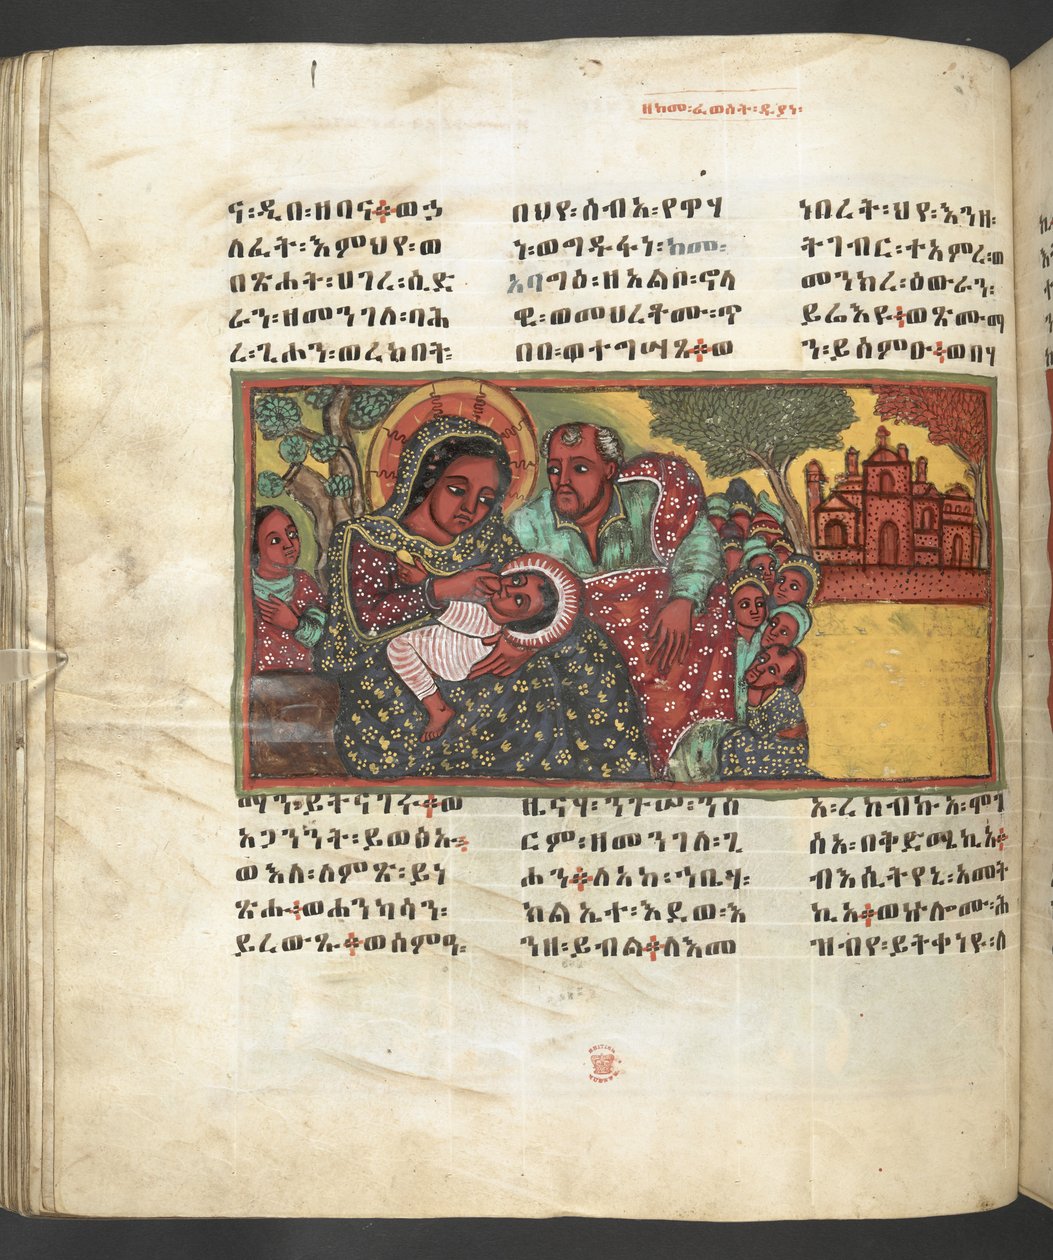 ዘከመ፡ፈወሰት፡ዱያነ፡
ና፡ዲበ፡ዘባና፨ወኃ
ለፈት፡እምህየ፡ወ
በጽሐት፡ሀገረ፡ሲድ
ራን፡ዘመንገለ፡ባሕ
ረ፡ጊሖን፡ወረከበት፡
በህየ፡ሰብአ፡የዋሃ
ነ፡ወግዱፋነ፡ከመ፡
አባግዕ፡ዘአልቦ፡ኖላ
ዊ፡ወመሀረቶሙ፡ጥ
በበ፡ወተግሣጸ፨ወ
ነበረት፡ህየ፡እንዘ፡
ትገብር፡ተአምረ፡ወ
መንክረ፡ዕውራን፡
ይሬእዩ፨ወጽሙማ
ን፡ይሰምዑ፨ወበሃ
ማን፡ይትናገሩ፨ወ
አጋንንት፡ይወፅኡ፨
ወእለ፡ለምጽ፡ይነ
ጽሑ፨ወሐንካሳን፡
ይረውጹ፨ወሰምዓ፡
ዜናሃ፡ንጉሠ፡ንስ
ርም፡ዘመንገለ፡ጊ
ሖን፨ለአከ፡ኀቤሃ፡
ክልኤተ፡እደወ፡እ
ንዘ፡ይብል፨ለእመ
አ፡ረከብኩ፡አ፡ሞገ
ሰአ፡በቅድሜኪአ፨
ብእሲትየኒ፡አመት
ኪአ፨ወኵሎሙ፡ሕ
ዝብየ፡ይትቀነዩ፡ለ
BRITISH MUSEUM